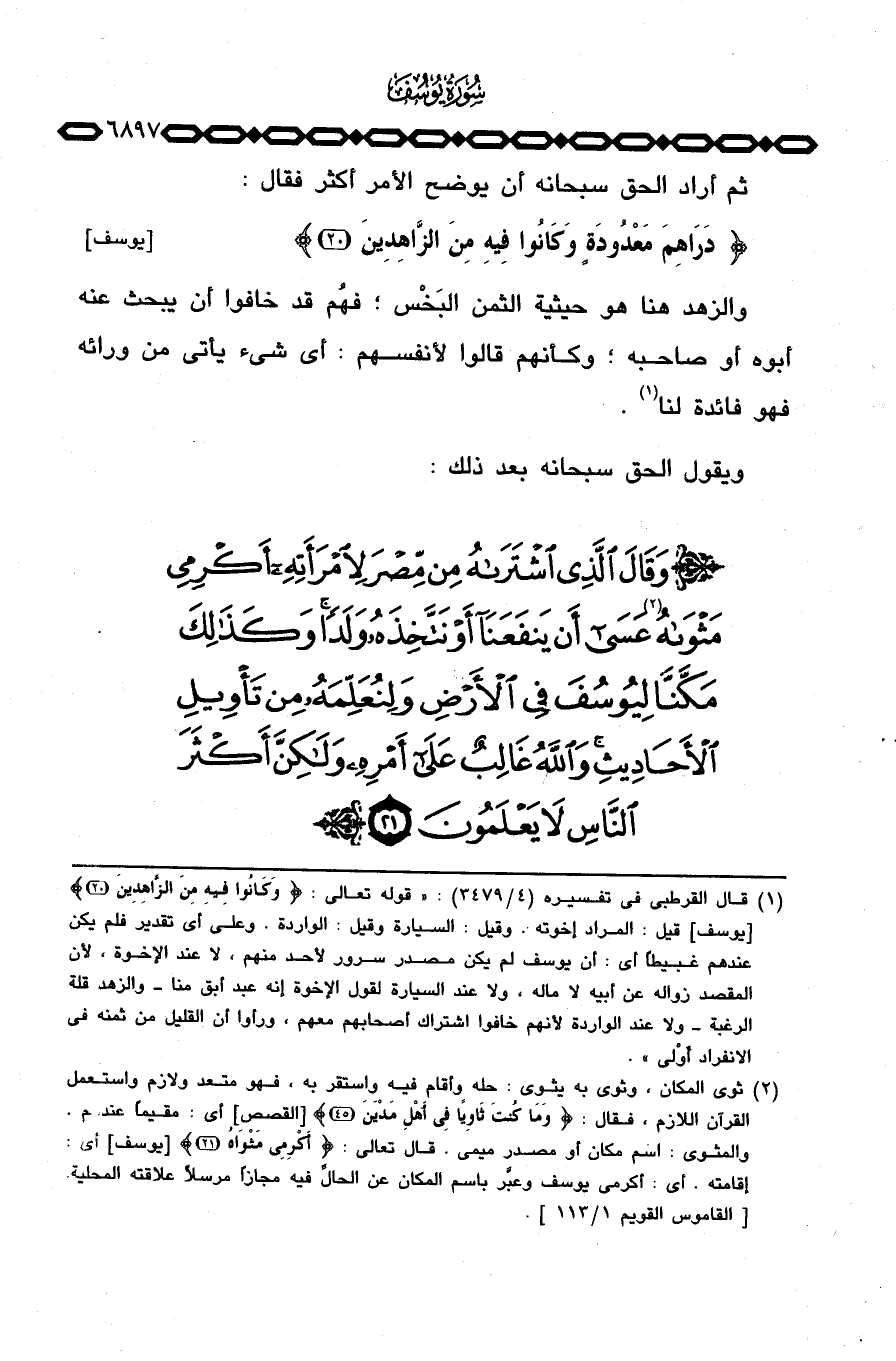 سُورَةُ يُوسُفَ
٦٨٩٧
ثم أراد الحق سبحانه أن يوضح الأمر أكثر فقال :
﴿ دَرَاهِمَ مَعْدُودَةٍ وَكَانُوا فِيهِ مِنَ الزَّاهِدِينَ (٢٠) ﴾ [يوسف]
والزهد هنا هو حيثية الثمن البَخْس ؛ فهُم قد خافوا أن يبحث عنه
أبوه أو صاحبه ؛ وكأنهم قالوا لأنفسهم : أى شىء يأتى من ورائه
فهو فائدة لنا(١) .
ويقول الحق سبحانه بعد ذلك :
وَقَالَ ٱلَّذِى ٱشْتَرَىٰهُ مِن مِّصْرَ لِٱمْرَأَتِهِۦٓ أَكْرِمِى
مَثْوَىٰهُ(٢) عَسَىٰٓ أَن يَنفَعَنَآ أَوْ نَتَّخِذَهُۥ وَلَدًا ۚ وَكَذَٰلِكَ
مَكَّنَّا لِيُوسُفَ فِى ٱلْأَرْضِ وَلِنُعَلِّمَهُۥ مِن تَأْوِيلِ
ٱلْأَحَادِيثِ ۚ وَٱللَّهُ غَالِبٌ عَلَىٰٓ أَمْرِهِۦ وَلَٰكِنَّ أَكْثَرَ
ٱلنَّاسِ لَا يَعْلَمُونَ ٢١
(١) قال القرطبى فى تفسيره (٣٤٧٩/٤) : « قوله تعالى : ﴿ وَكَانُوا فِيهِ مِنَ الزَّاهِدِينَ (٢٠) ﴾
[يوسف] قيل : المراد إخوته . وقيل : السيارة وقيل : الواردة . وعلى أى تقدير فلم يكن
عندهم غبيطاً أى : أن يوسف لم يكن مصدر سرور لأحد منهم ، لا عند الإخوة ، لأن
المقصد زواله عن أبيه لا ماله ، ولا عند السيارة لقول الإخوة إنه عبد أبق منا – والزهد قلة
الرغبة – ولا عند الواردة لأنهم خافوا اشتراك أصحابهم معهم ، ورأوا أن القليل من ثمنه فى
الانفراد أوْلى » .
(٢) ثوى المكان ، وثوى به يثوى : حله وأقام فيه واستقر به ، فهو متعد ولازم واستعمل
القرآن اللازم ، فقال : ﴿ وَمَا كُنتَ ثَاوِيًا فِى أَهْلِ مَدْيَنَ (٤٥) ﴾ [القصص] أى : مقيماً عندهم .
والمثوى : اسم مكان أو مصدر ميمى . قال تعالى : ﴿ أَكْرِمِى مَثْوَاهُ (٢١) ﴾ [يوسف] أى :
إقامته . أى : أكرمى يوسف وعبَّر باسم المكان عن الحالِّ فيه مجازاً مرسلاً علاقته المحلية.
[ القاموس القويم ١١٣/١ ] .